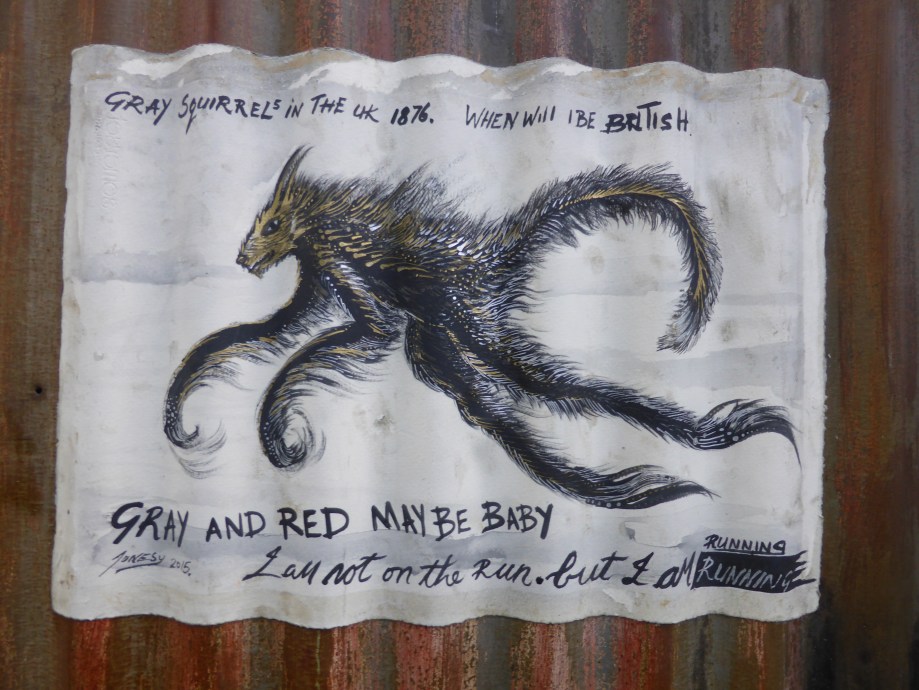 GRAY SQUIRRELS IN THE UK 1876. WHEN WILL I BE BRITISH.
GRAY AND RED MAYBE BABY
JONESY 2015.
RUNNING
I am not on the Run. but I aM RUNNING